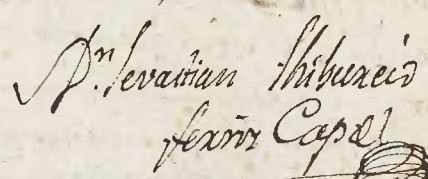 Dn. Sevastian Thiburcio
ferrnz Capel